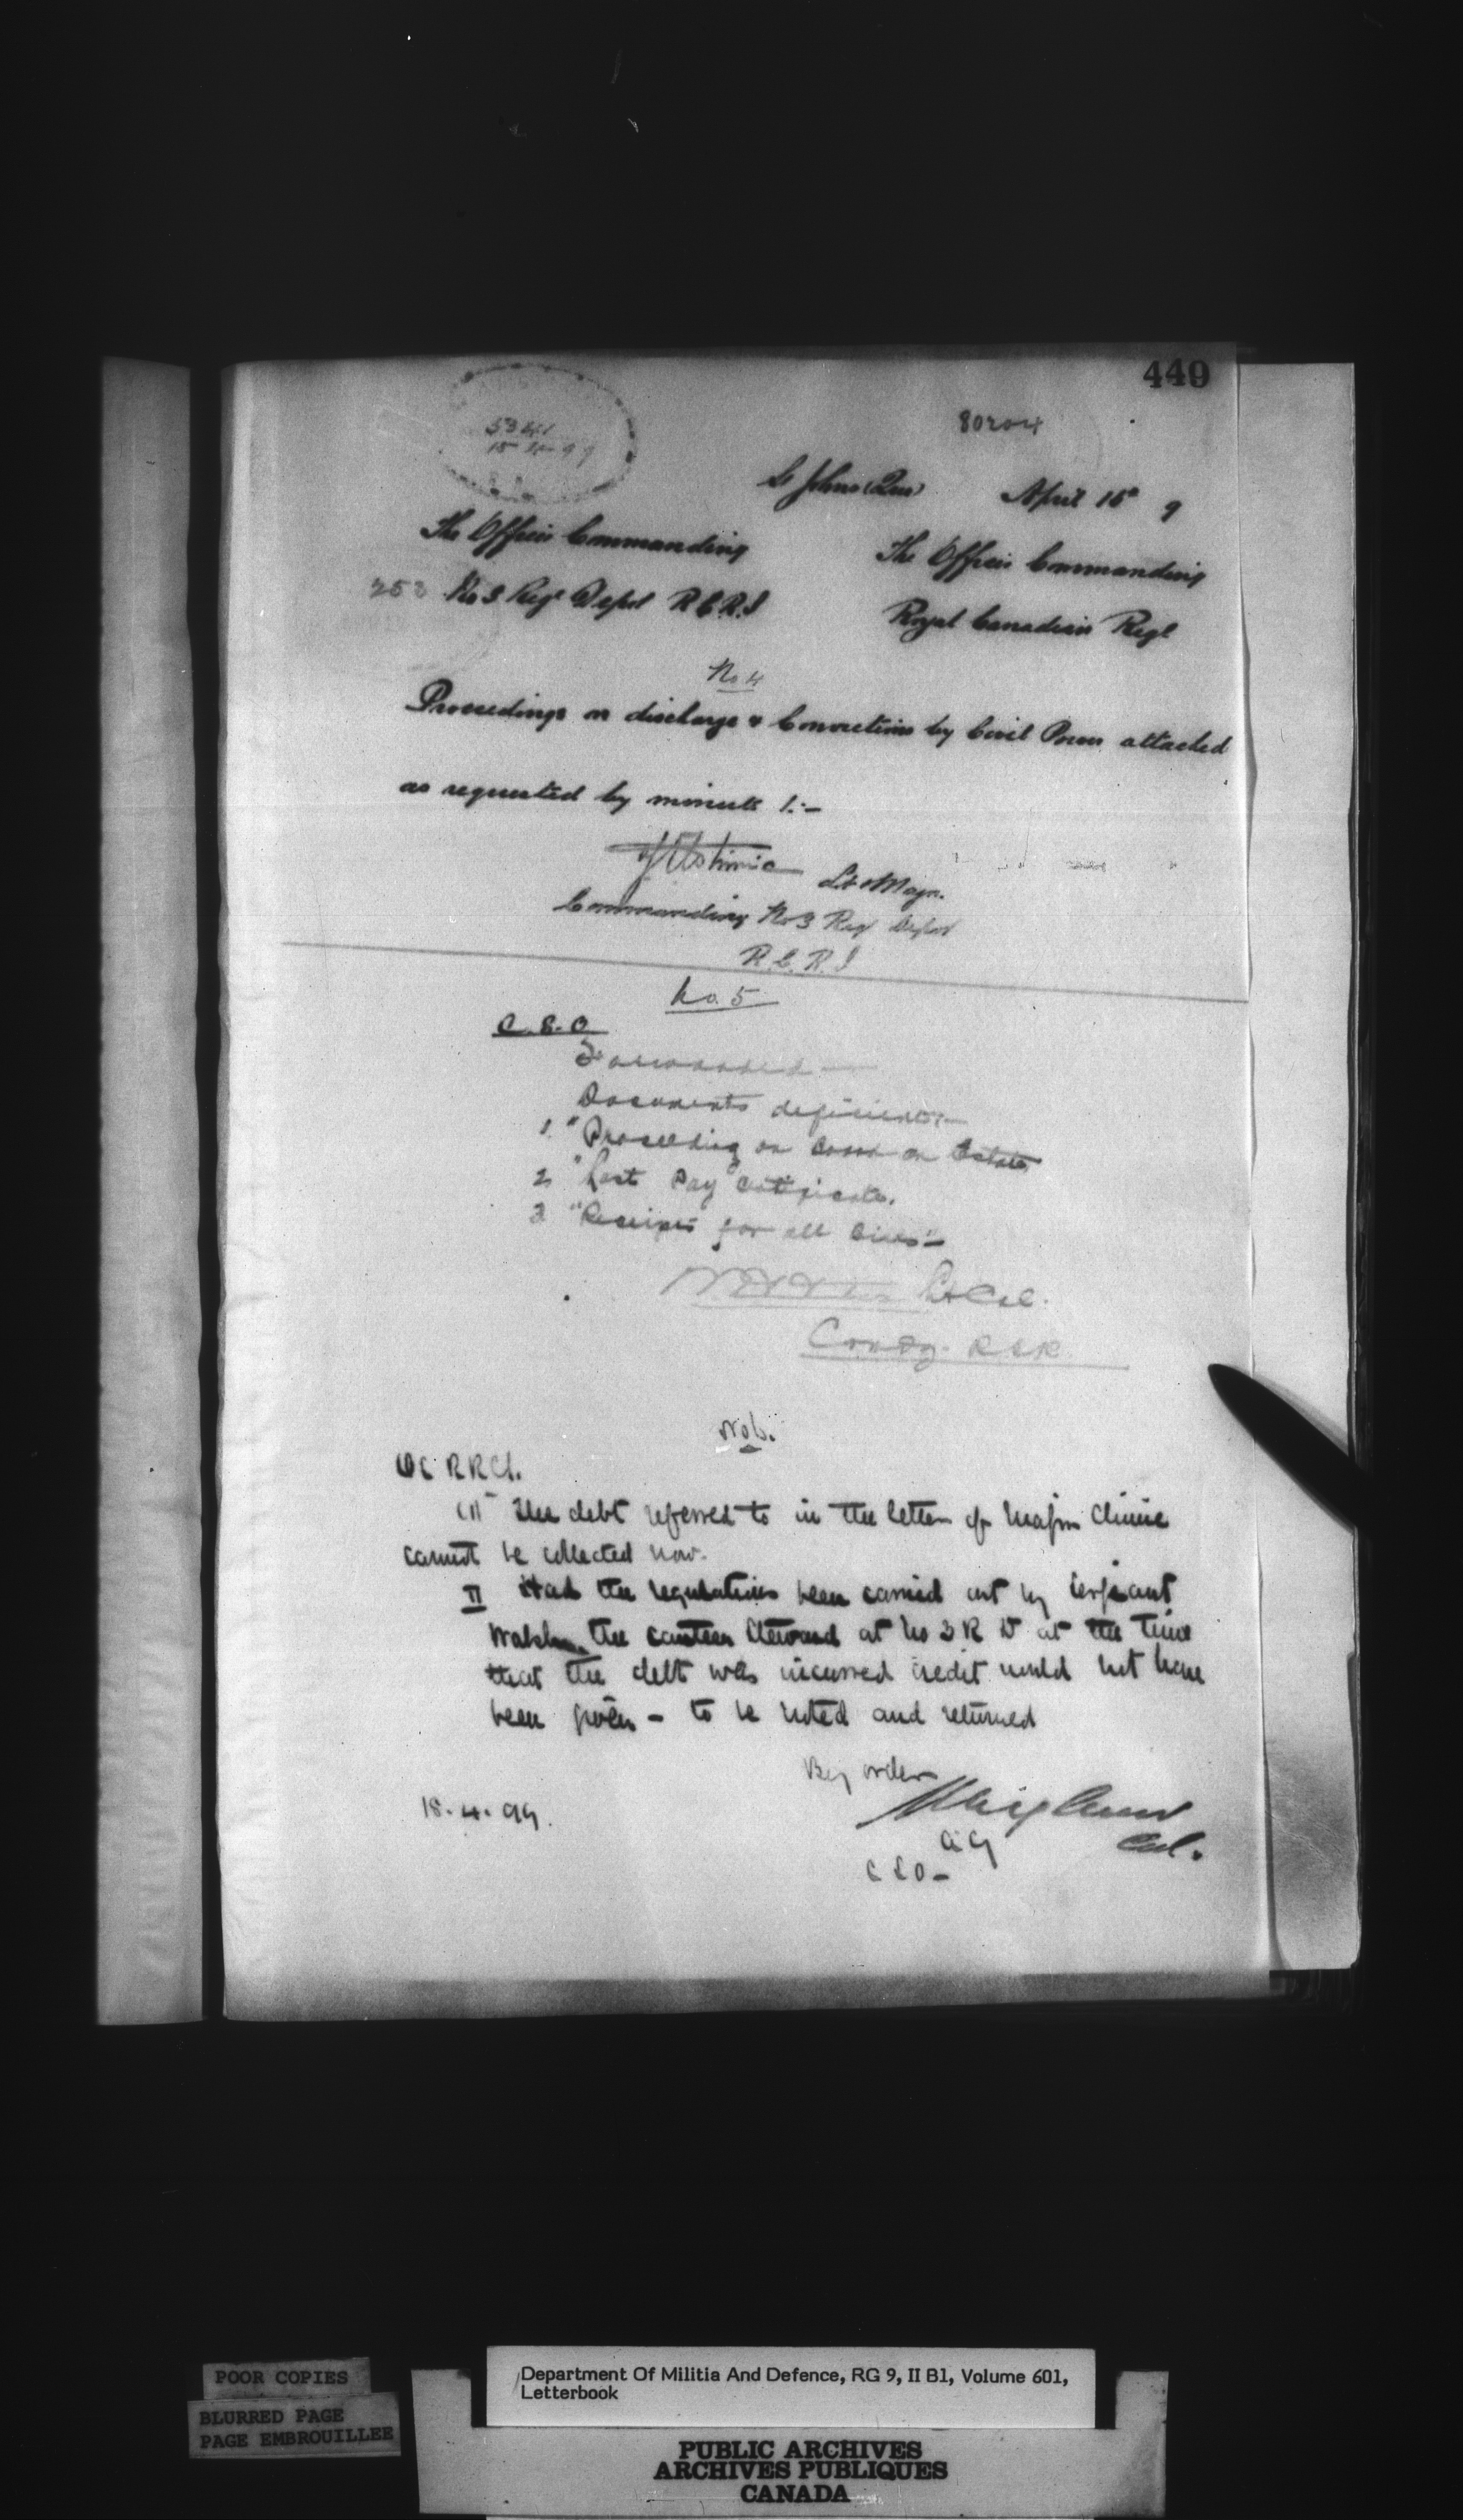 440
80204
5341
15 4 99
St Johns (Que) April 15th 9
The Officer Commanding
The Officer Commanding
No 3 Regt Depot R.C.R.I
Royal Canadian Regt
No 4
Proceedings on discharge & Convictions by Civil Power attached
as requested by minute 1:-
Lt & Major
Commanding No 3 Reg Depot
R.C.R.I
No. 5
C.S.O
Forwarded —
Documents deficient:—
1. "Proceeding on Board on
2 "Last Pay Certificate.
3 "Receipts for all
Lt Col.
Comdg. RCR
No 6.
OC RRCI.
(I) The debt referred to in the letter of Major Clinic
cannot be collected now.
II Had the regulations been carried out by Sergeant
the canteen steward at No 3 R D at the time
that the debt was incurred credit would not have
been given - to be noted and returned
By order
18.4.99.
Col.
AG
CSO-
POOR COPIES
BLURRED PAGE
PAGE EMBROUILLEE
Department Of Militia And Defence, RG 9, II B1, Volume 601,
Letterbook
PUBLIC ARCHIVES
ARCHIVES PUBLIQUES
CANADA